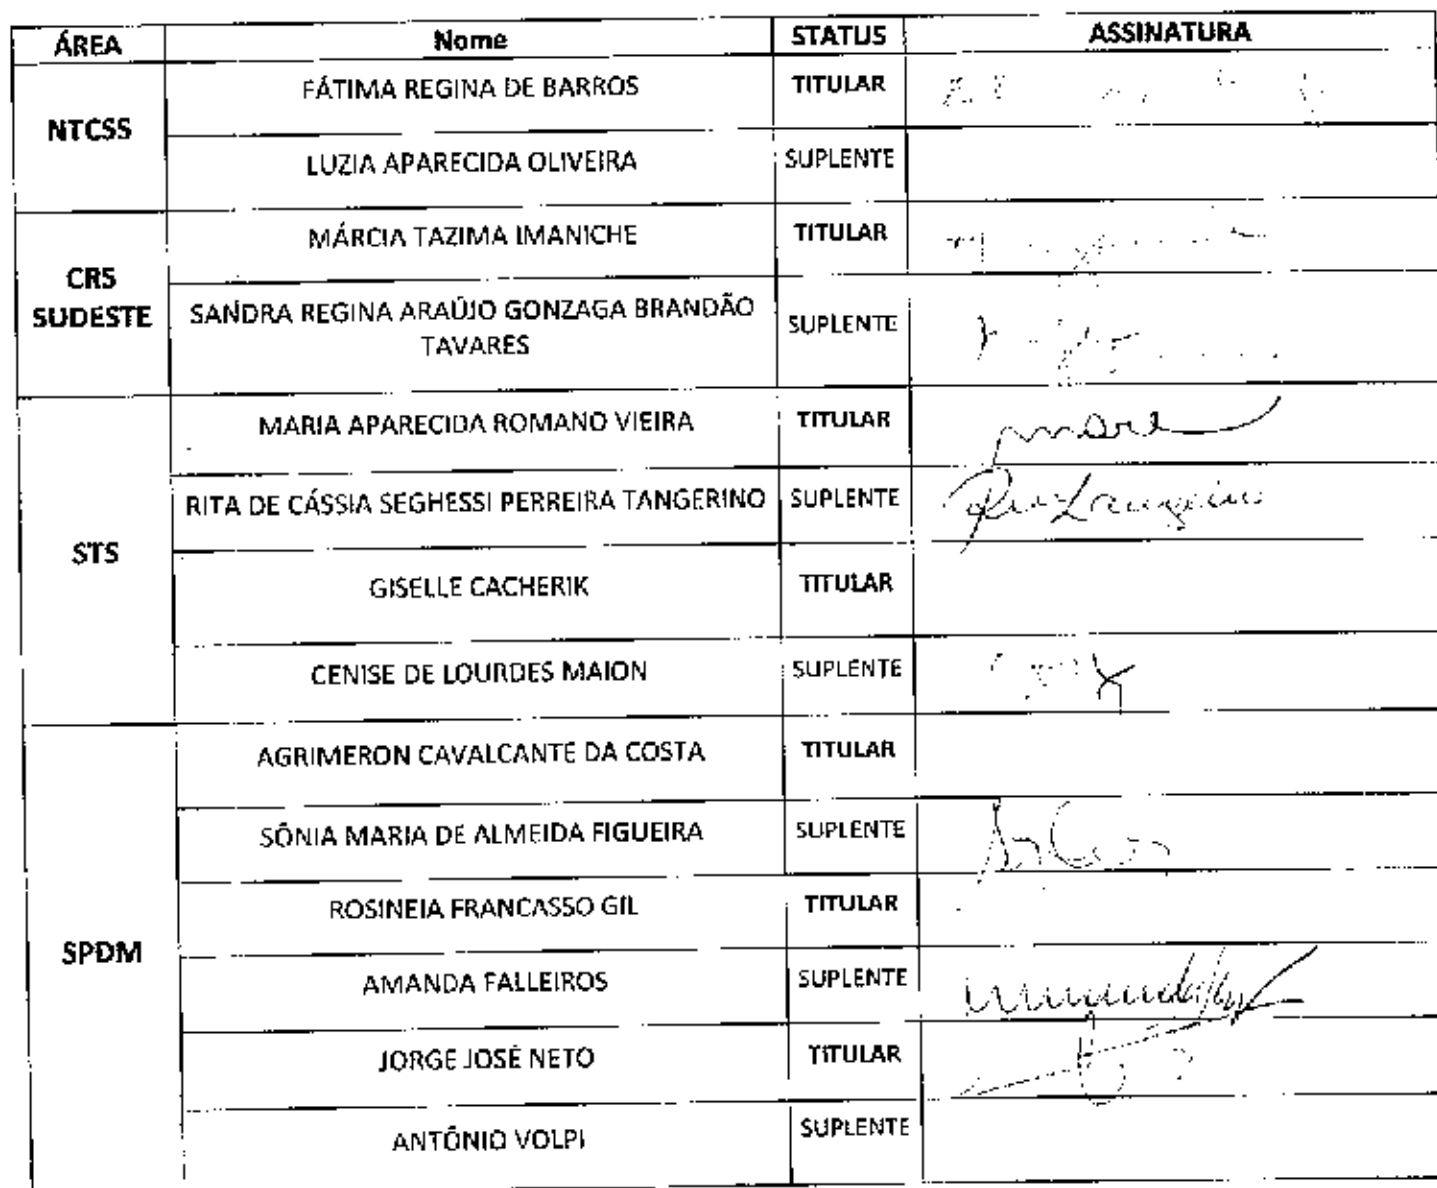 ÁREA Nome STATUS ASSINATURA
NTCSS
FÁTIMA REGINA DE BARROS TITULAR
LUZIA APARECIDA OLIVEIRA SUPLENTE
CRS
SUDESTE
MÁRCIA TAZIMA IMANICHE TITULAR
SANDRA REGINA ARAÚJO GONZAGA BRANDÃO
TAVARES
SUPLENTE
STS
MARIA APARECIDA ROMANO VIEIRA TITULAR
RITA DE CÁSSIA SEGHESSI PERREIRA TANGERINO SUPLENTE
GISELLE CACHERIK TITULAR
CENISE DE LOURDES MAION SUPLENTE
SPDM
AGRIMERON CAVALCANTE DA COSTA TITULAR
SÔNIA MARIA DE ALMEIDA FIGUEIRA SUPLENTE
ROSINEIA FRANCASSO GIL TITULAR
AMANDA FALLEIROS SUPLENTE
JORGE JOSÉ NETO TITULAR
ANTÔNIO VOLPI SUPLENTE